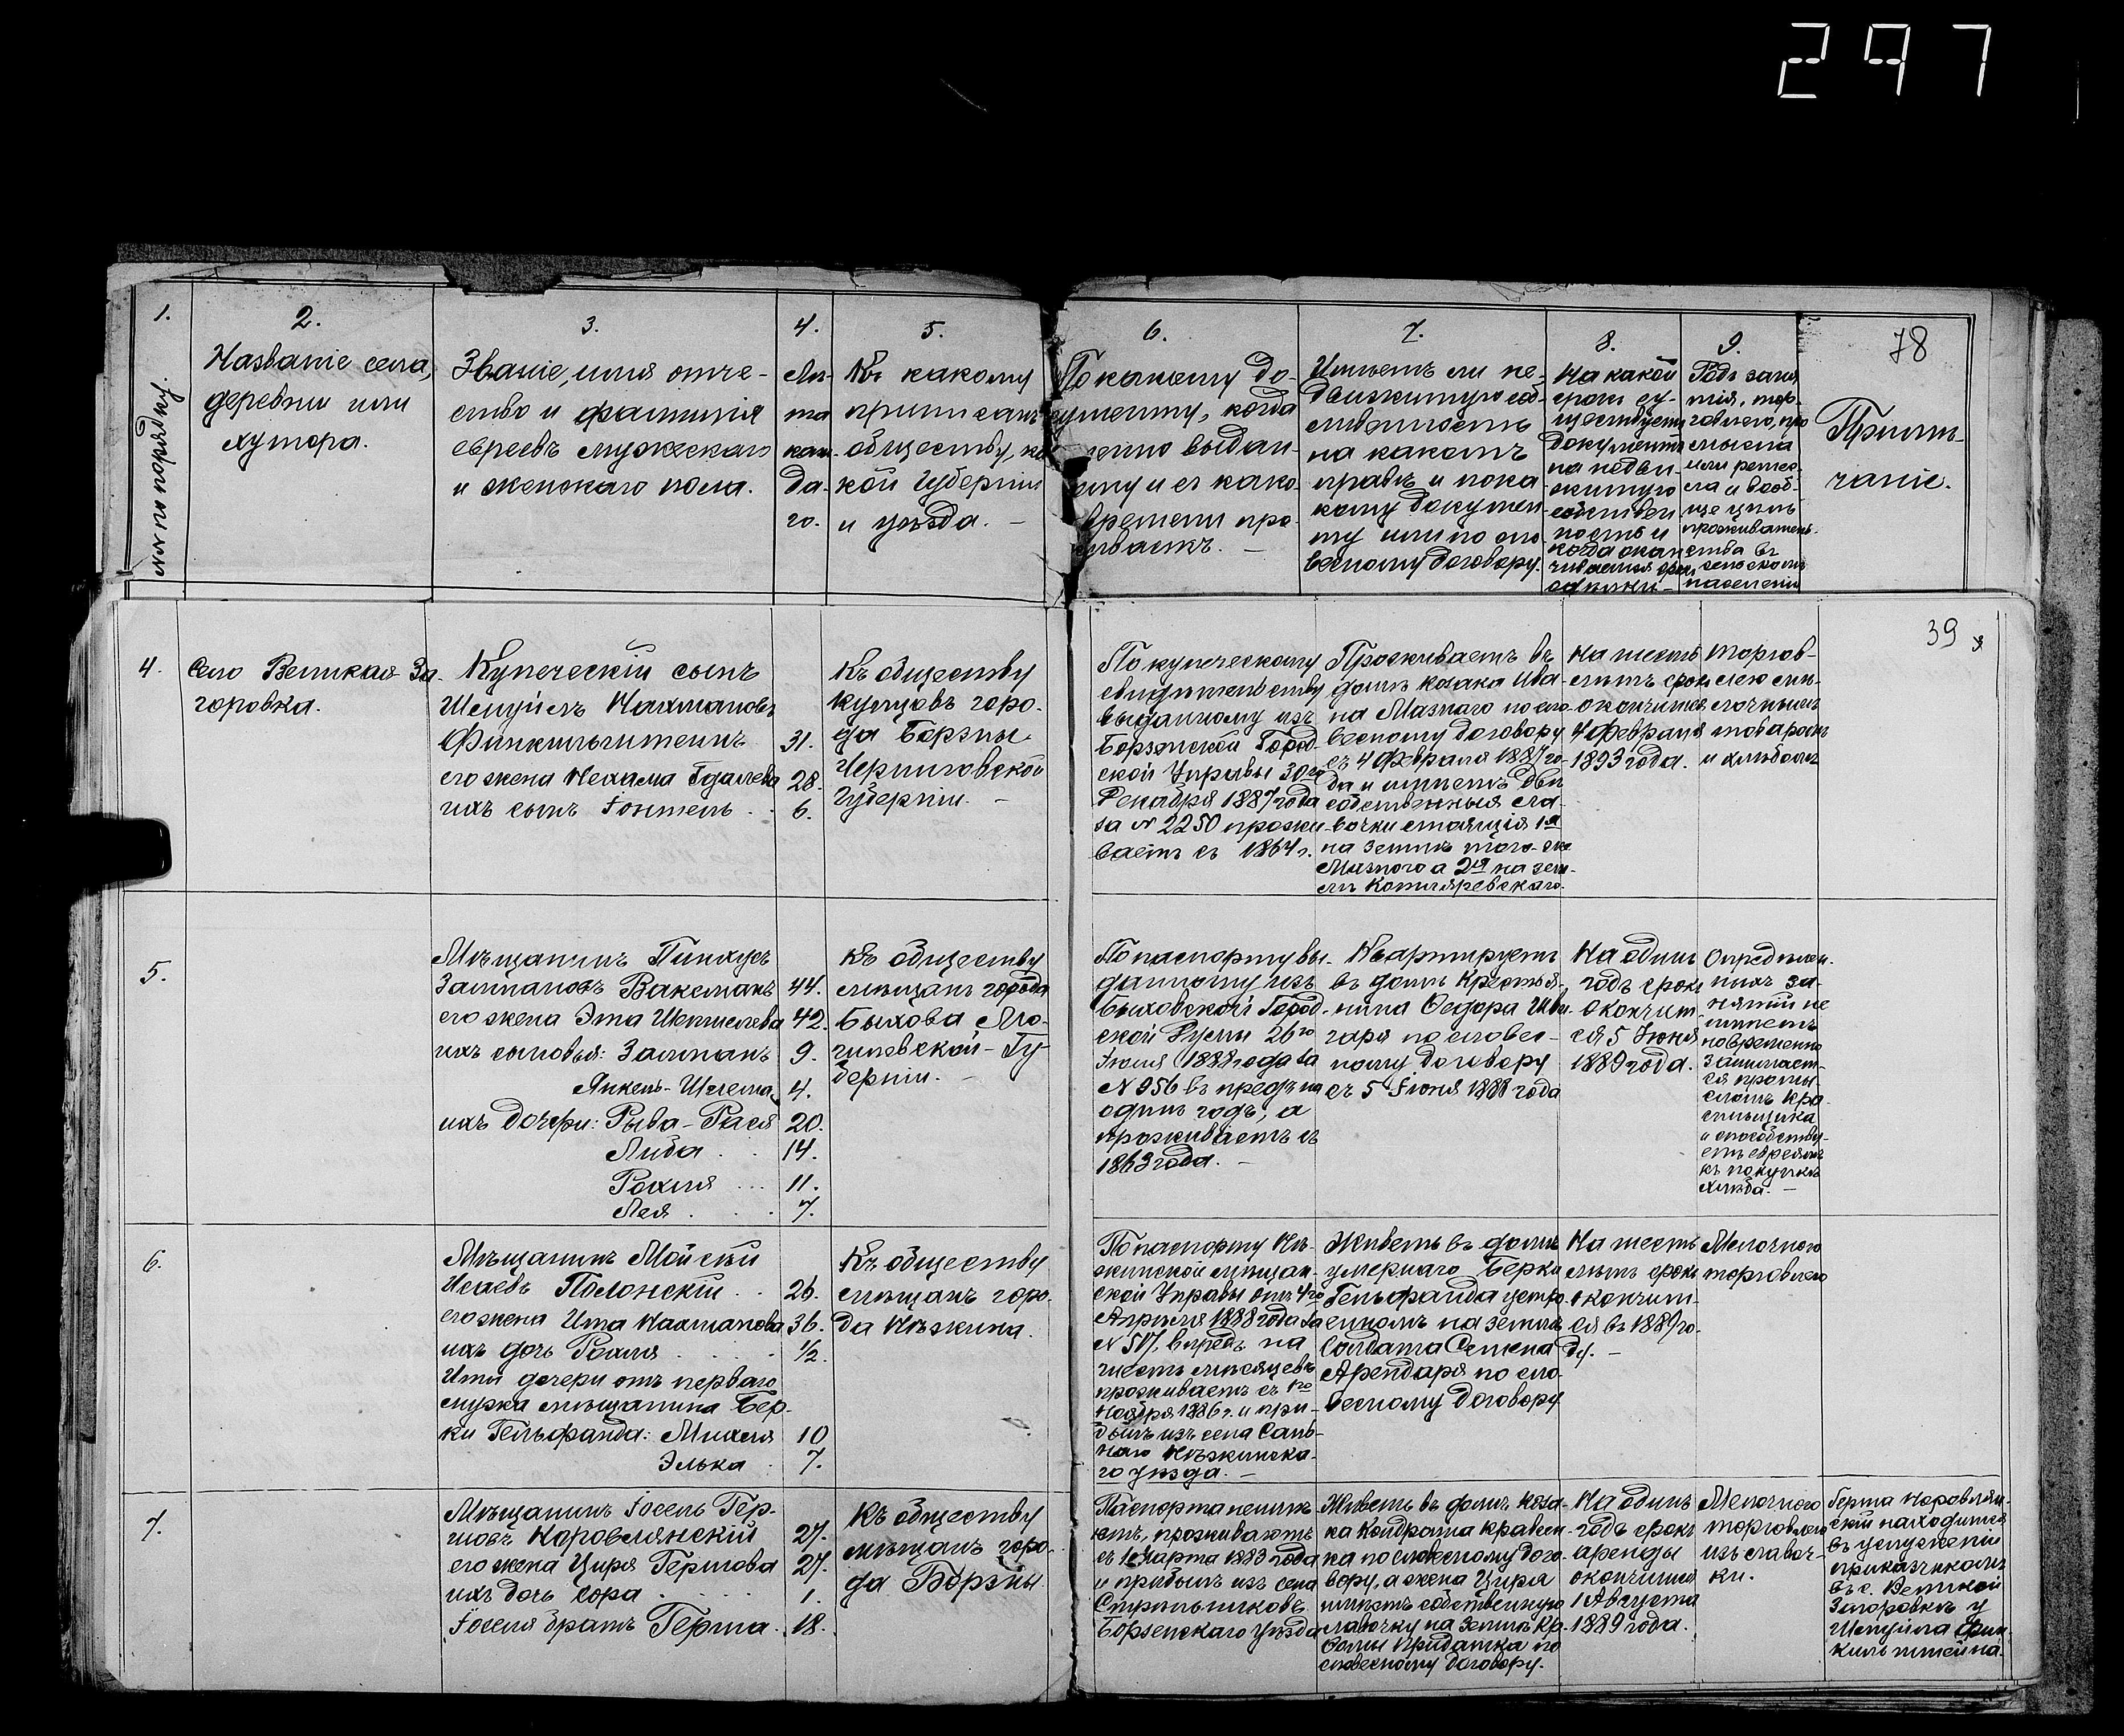 297
1.
№№ по порядку.
2.
Названіе села,
деревни или
хутора.
3.
Званіе, имя отче-
ство и фамилія
евреевъ мужескаго
и женскаго пола.
4.
Лѣ-
та
каж-
да-
го.
5.
Къ какому
приписанъ
обществу, ка
кой губерніи
и уѣзда. –
6.
По какому до-
кументу, когда
выдан-
ему и съ како-
времени про-
живаетъ. –
7.
Имѣетъ ли не-
движимую соб-
ственность
на какомъ
правѣ и по ка
кому докумен
ту или по сло
весному договору.
8.
На какой
срокъ су-
ществуетъ
документъ
на недви-
жимую
собствен
ность и
когда окан
чивается срокъ
9.
Родъ заня
тія, тор-
говлею, про
мысла
или ремес-
ла и вооб-
ще цѣль
проживатель-
ства въ
сельскомъ
населеніи
78
Примѣ-
чаніе.
39
4.
Село Великая За-
горовка.
Купеческій сынъ
Шмуйлъ Нахмановъ
Финкильштейнъ 31.
его жена Нехама Гдалева 28.
ихъ сынъ Іонтель . . 6.
Къ обществу
купцовъ горо-
да Борзны
Черниговской
Губерніи. –
По купеческому
свидѣтельству
выданному изъ
Борзенской Город-
ской Управы 30го
Декабря 1887 года
за № 2250 прожи-
ваетъ съ 1864 г.
Проживаетъ въ
домѣ козака Ива-
на Мазнаго по сло-
весному договору
съ 4 февраля 1887 го-
да и имѣетъ двѣ
собственныя ла-
вочки стоящія 1я
на землѣ того-же
Мазнаго а 2я на зем-
лѣ Котляревскаго.
На шесть
лѣтъ срокъ
окончится
4 февраля
1893 года.
Торгов-
лею ме-
лочнымъ
товаромъ
и хлѣбомъ
5.
Мѣщанинъ Пинхусъ
Залмановъ Ваксманъ 44.
его жена Эта Шмилева 42.
ихъ сыновья: Залманъ 9.
Янкель-Шлема 4.
ихъ дочери: Рыва-Рася 20.
Либа . . 14.
Рохля ... 11.
Лея . . . 7.
Къ обществу
мѣщанъ города
Быхова Мо-
гилевской-Гу-
берніи. –
По паспорту вы-
данному изъ
Быховской Город-
ской Думы 26го
Іюля 1888 года за
№ 956 впредь на
одинъ годъ, а
проживаетъ съ
1863 года. –
Квартируетъ
въ домѣ Крестья-
нина Федора Шин-
каря по словес-
ному договору
съ 5 Іюня 1888 года
На одинъ
годъ срокъ
Окончит-
ся 5 Іюня
1889 года.
Опредѣлен-
ныхъ за-
нятій не
имѣетъ
но временно
занимает-
ся промы-
сломъ кра
сильщика
и способству-
етъ евреямъ
къ покупкѣ
хлѣба. –
6.
Мѣщанинъ Мойсѣй
Исаевъ Полонскій . . 26.
его жена Ита Нахманова 36.
ихъ дочь Рохля . . . . 1/2.
Иты дочери отъ перваго
мужа мѣщанина Бер-
ки Гельфанда: Михля 10
Элька . 7.
Къ обществу
мѣщанъ горо-
да Нѣжина.
По паспорту Нѣ-
жинской мѣщан-
ской Управы отъ 4го
Апрѣля 1888 года за
№ 517, впредь на
шесть мѣсяцевъ
проживаетъ съ 1го
Ноября 1886 г. и при-
былъ изъ села Саль-
наго Нѣжинска-
го уѣзда. –
Живетъ въ домѣ
умершаго Берки
Гельфанда устро-
енномъ на землѣ
Солдата Семена
Арендаря по сло-
весному договору
На шесть
лѣтъ срокъ
окончит-
ся въ 1889 го-
ду. –
Мелочного
торговлею
7.
Мѣщанинъ Іосель Гер-
шовъ Коровлянскій 27.
его жена Цыря Гершова 27.
ихъ дочь Сора . . . . 1.
Іоселя братъ Герша . 18.
Къ обществу
мѣщанъ горо-
да Борзны
Паспорта не имѣ-
етъ, проживаетъ
съ 1 Марта 1883 года
и прибылъ изъ села
Стрѣльниковъ
Борзенскаго Уѣзда
Живетъ въ домѣ коза-
ка Кондрата Кравчен-
ка по словесному дого-
вору, а жена Цыря
имѣетъ собственную
лавочку на землѣ Кр.
Придатка по
словесному договору.
На одинъ
годъ срокъ
аренды
окончится
1 Августа
1889 года.
Мелочного
торговлею
изъ лавоч-
ки.
Герша Коровлян-
скій находится
въ услуженіи
приказчикомъ
въ с. Великой
Загоровкѣ у
Шмуйла Фин-
кильштейна.